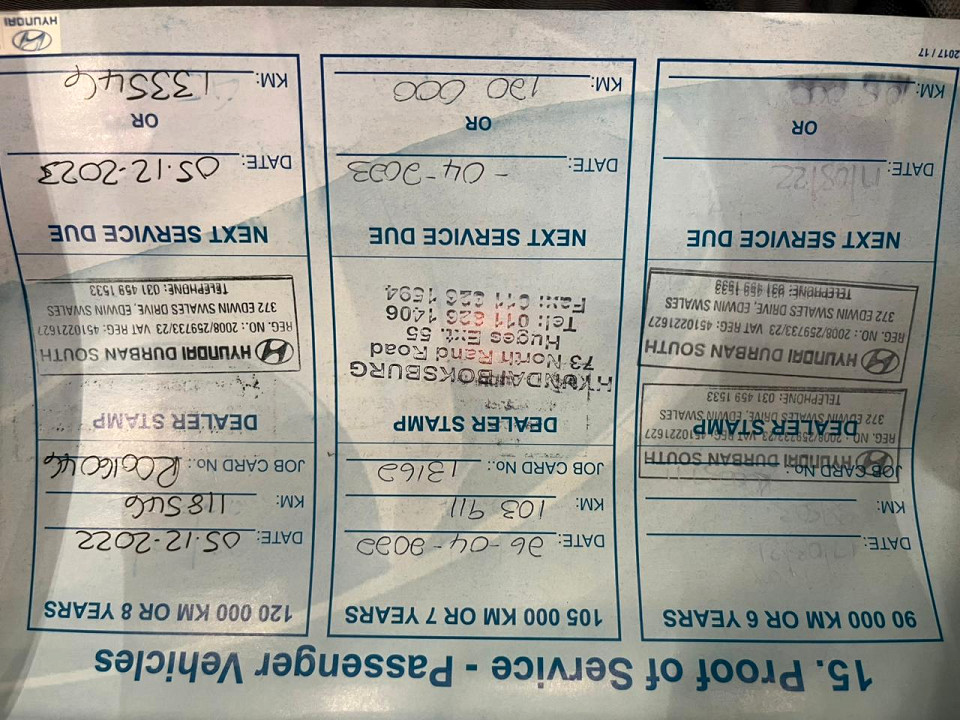 15. Proof of Service - Passenger Vehicles
90 000 KM OR 6 YEARS
DATE:
KM:
JOB CARD No.:
DEALER STAMP
HYUNDAI DURBAN SOUTH
REG. NO.: 2008/259733/23 VAT REG: 4510221627
372 EDWIN SWALES DRIVE, EDWIN SWALES
TELEPHONE: 031 459 1533
HYUNDAI DURBAN SOUTH
REG. NO.: 2008/259733/23 VAT REG: 4510221627
372 EDWIN SWALES DRIVE, EDWIN SWALES
TELEPHONE: 031 459 1533
NEXT SERVICE DUE
DATE:
OR
KM:
105 000 KM OR 7 YEARS
DATE: 26-04-2022
KM: 103 911
JOB CARD No.: 13162
DEALER STAMP
HYUNDAI BOKSBURG
73 North Rand Road
Huges Ext. 55
Tel: 011 826 1406
Fax: 011 826 1594
NEXT SERVICE DUE
DATE: - 04-2023
OR
KM: 120 000
120 000 KM OR 8 YEARS
DATE: 05.12.2022
KM: 118546
JOB CARD No.:
DEALER STAMP
HYUNDAI DURBAN SOUTH
REG. NO.: 2008/259733/23 VAT REG: 4510221627
372 EDWIN SWALES DRIVE, EDWIN SWALES
TELEPHONE: 031 459 1533
NEXT SERVICE DUE
DATE: 05.12.2023
OR
KM: 133546
2017/17
HYUNDAI